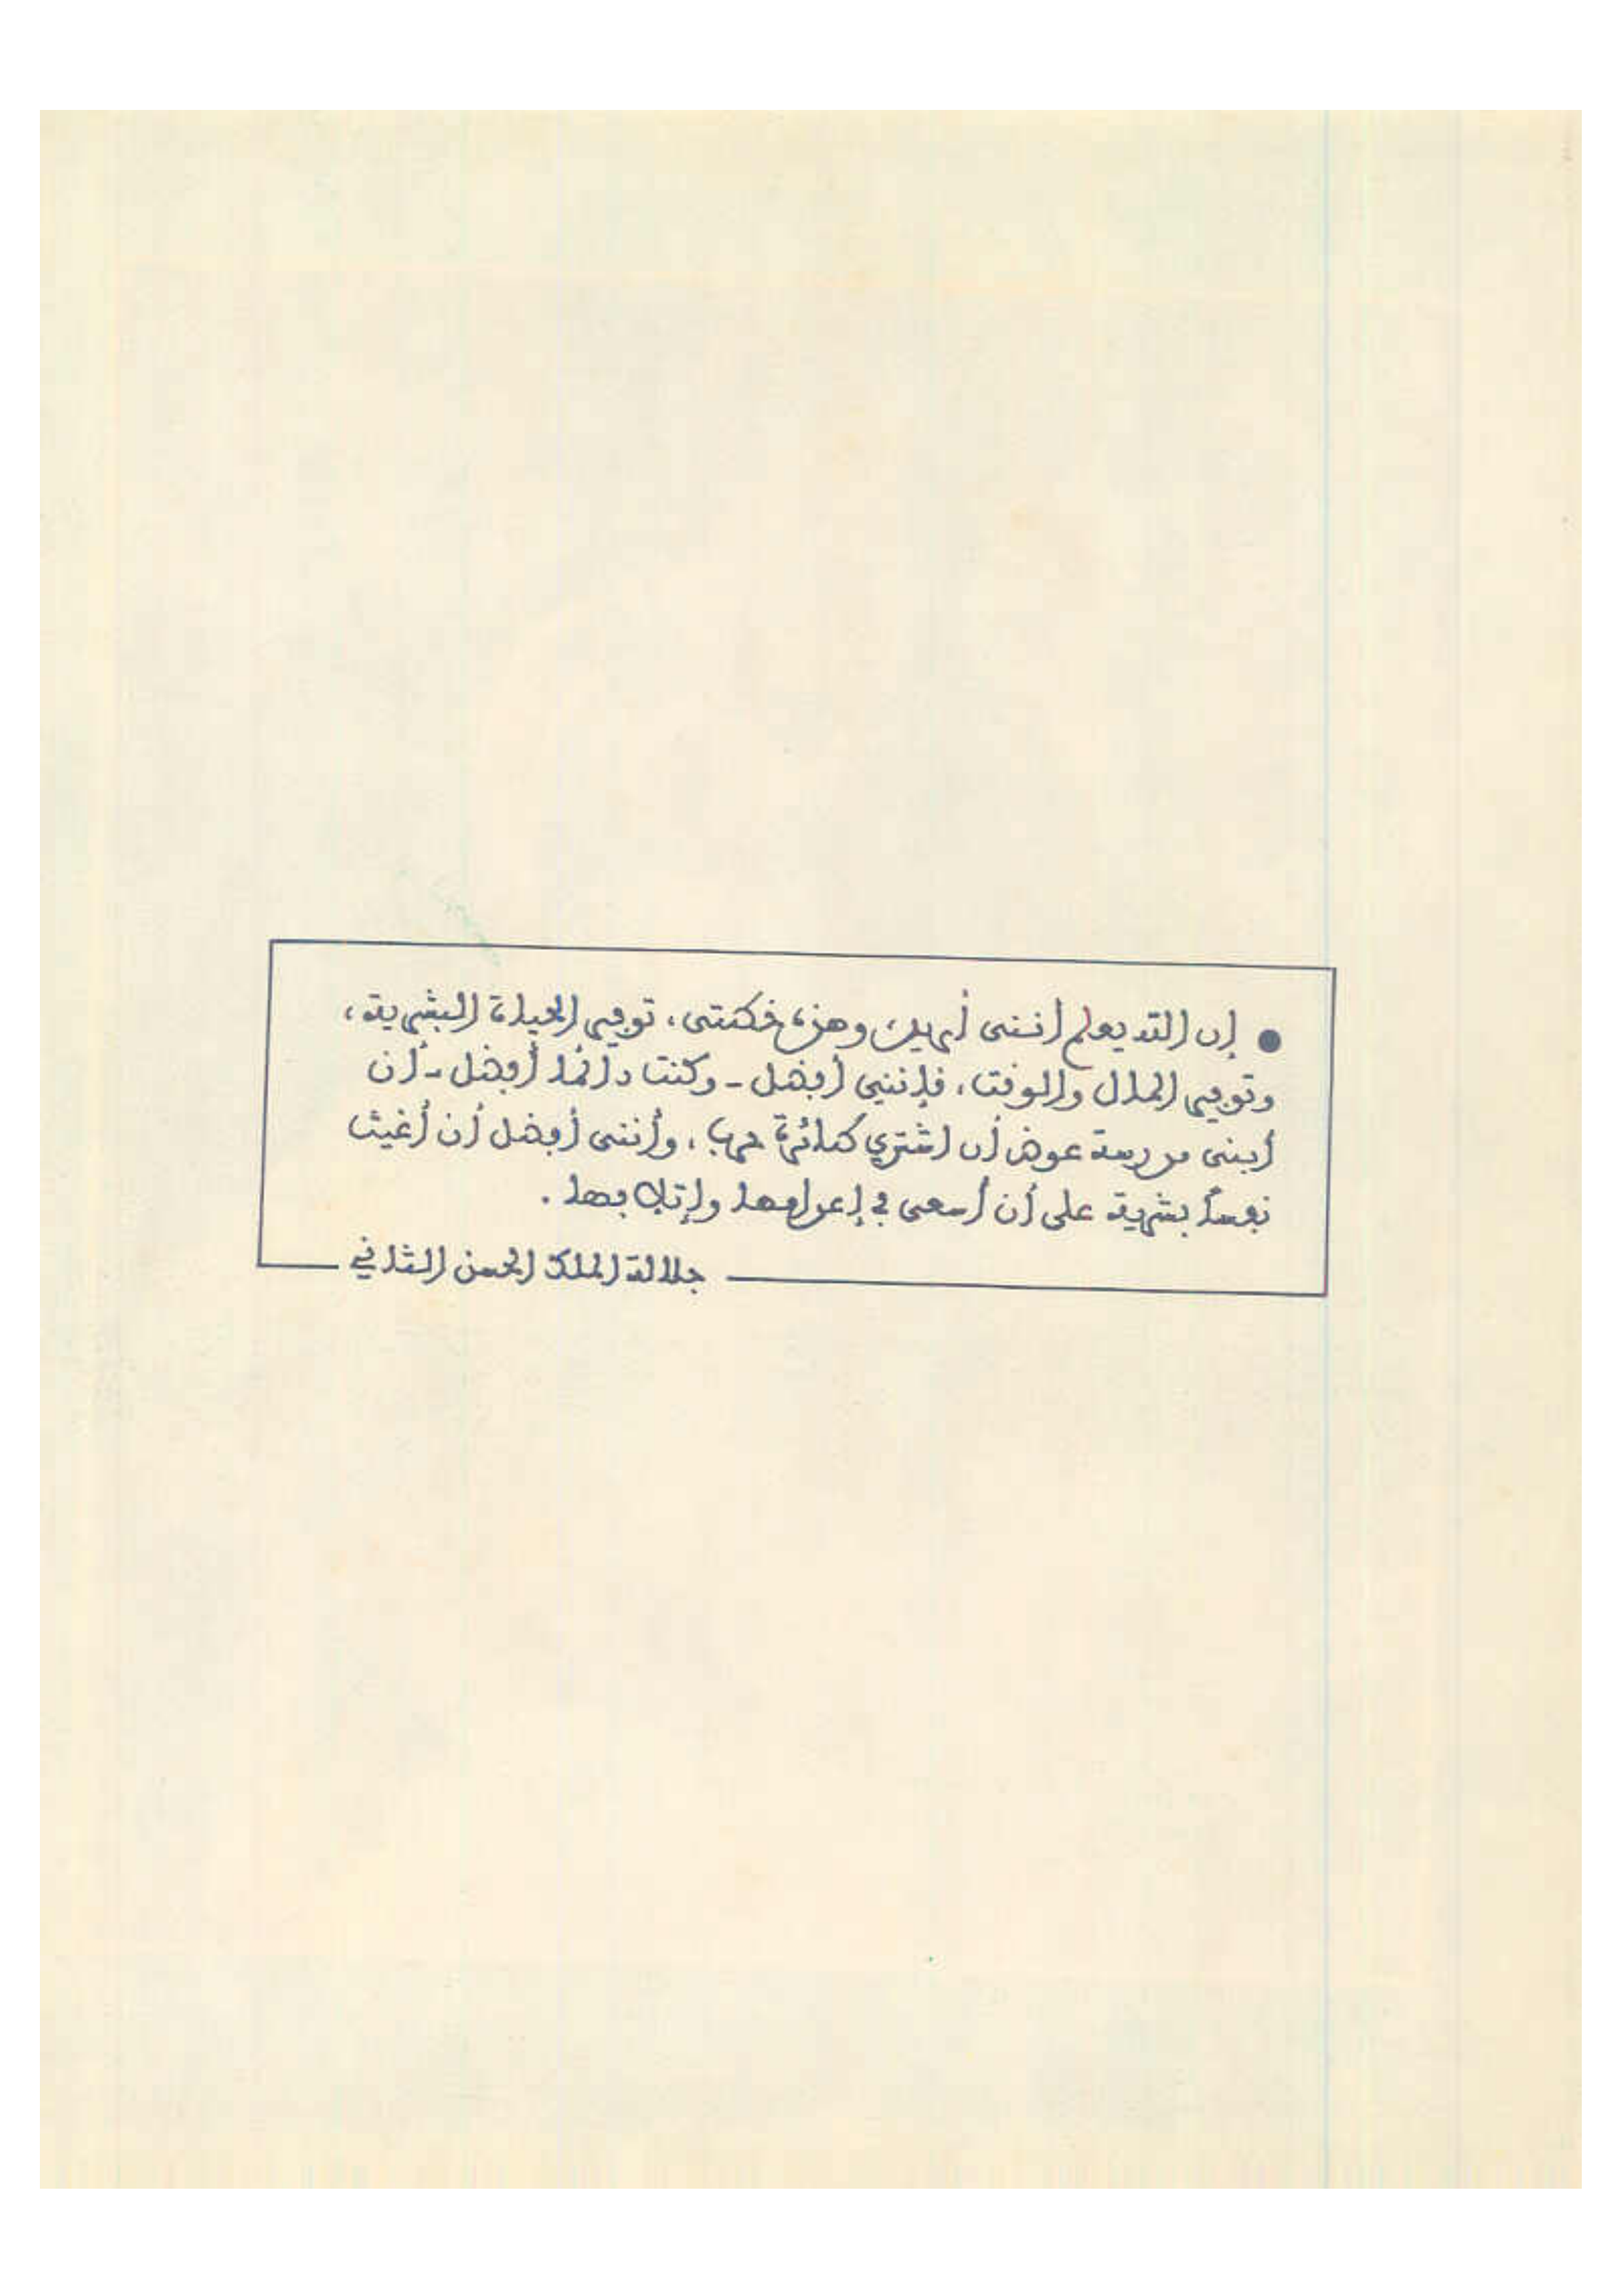 ● إن الله يعلم أنني أريد، وهذه خطتي، توفير الحياة البشرية،
وتوفير المال والوقت، فإنني أفضل - وكنت دائما أفضل - أن
أبني مدرسة عوض أن اشتري طائرة حرب، وأنني أفضل أن أغيث
نفسا بشرية على أن أسعى في إعدامها وإتلافها.
جلالة الملك الحسن الثاني